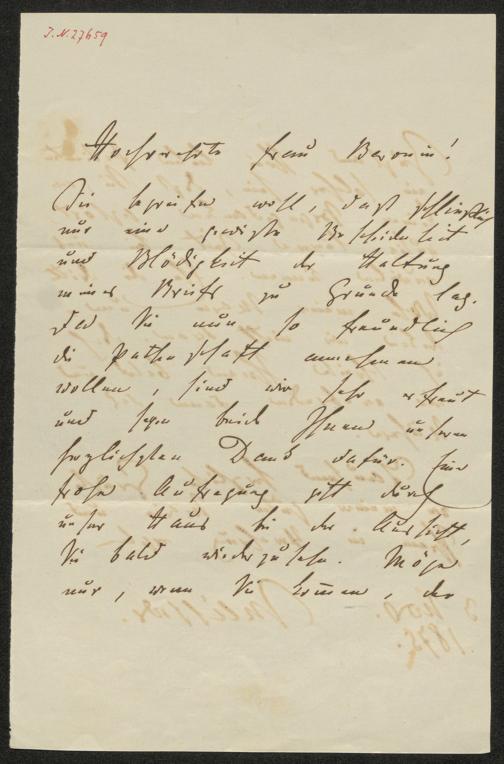 J.N. 27659
Hochverehrte Frau Baronin!
Sie begreifen wohl, daß schließlich
nur eine gewiße Bescheidenheit
und Blödigkeit der Haltung
meines Briefs zu Grunde lag.
Da Sie nun so freundlich
die Pathenschaft annehmen
wollen, sind wir sehr erfreut
und sagen beide Ihnen unseren
herzlichsten Dank dafür. Eine
frohe Aufregung geht durch
unser Haus bei der Aussicht,
Sie bald wiederzusehen. Möge
nur, wenn Sie kommen, der